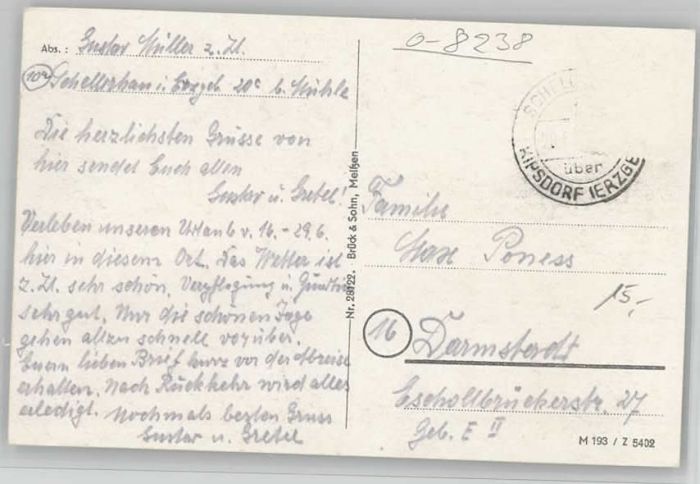 Abs.: Gustav Müller z. Zt.
10a Schellerhau i. Erzgeb. 20c b. Mühle
Die herzlichsten Grüsse von
hier sendet Euch allen
Gustav u. Gretel!
Verleben unseren Urlaub v. 16. - 29.6.
hier in diesem Ort. Das Wetter ist
z. Zt. sehr schön, Verpflegung u.
sehr gut. Nur die schönen Tage
gehen allzu schnell vorüber.
Euern lieben Brief kurz vor der Abreise
erhalten. Nach Rückkehr wird alles
erledigt. Nochmals besten Gruss
Gustav u. Gretel
Nr. 28122. Brück & Sohn, Meißen
o-8238
SCHELL
über
KIPSDORF (ERZGE
Familie
Max Poness
15,-
16 Darmstadt
Eschollbrückerstr. 27
Geb. E II
M 193 / Z 5402